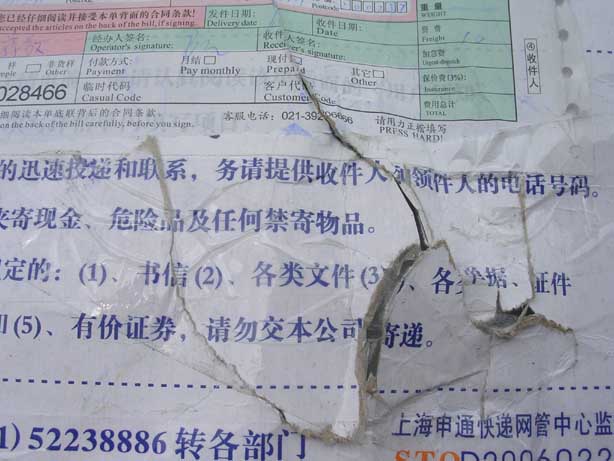 您已经仔细阅读并接受本单背面的合同条款!
accepted the articles on the back of the bill, if signing.
发件日期
Delivery date
重量
WEIGHT
经办人签名:
Operator's signature:
收件人签名:
Receiver's signature:
日期
Date
资费
Freight
加急费
④收件人
样 非货样
Other
付款方式:
Payment
月结
Pay monthly
现付
Prepaid
其它
Other
保价费(3%):
Insurance
028466
临时代码
Casual Code
客户代
Customer
费用总计
TOTAL
细阅读本单底联背后的合同条款。
on the back of the bill carefully, before you sign.
客服电话: 021-39206666
请用力正楷填写
PRESS HARD!
的迅速投递和联系，务请提供收件人 领件人的电话号码。
夹寄现金、危险品及任何禁寄物品。
定的: (1)、书信(2)、各类文件(3)、各 据、证件
(5)、有价证券，请勿交本公司寄递。
1) 52238886 转各部门
上海申通快递网管中心监
STO